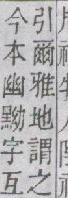 引爾雅地謂之
今本幽黝字互